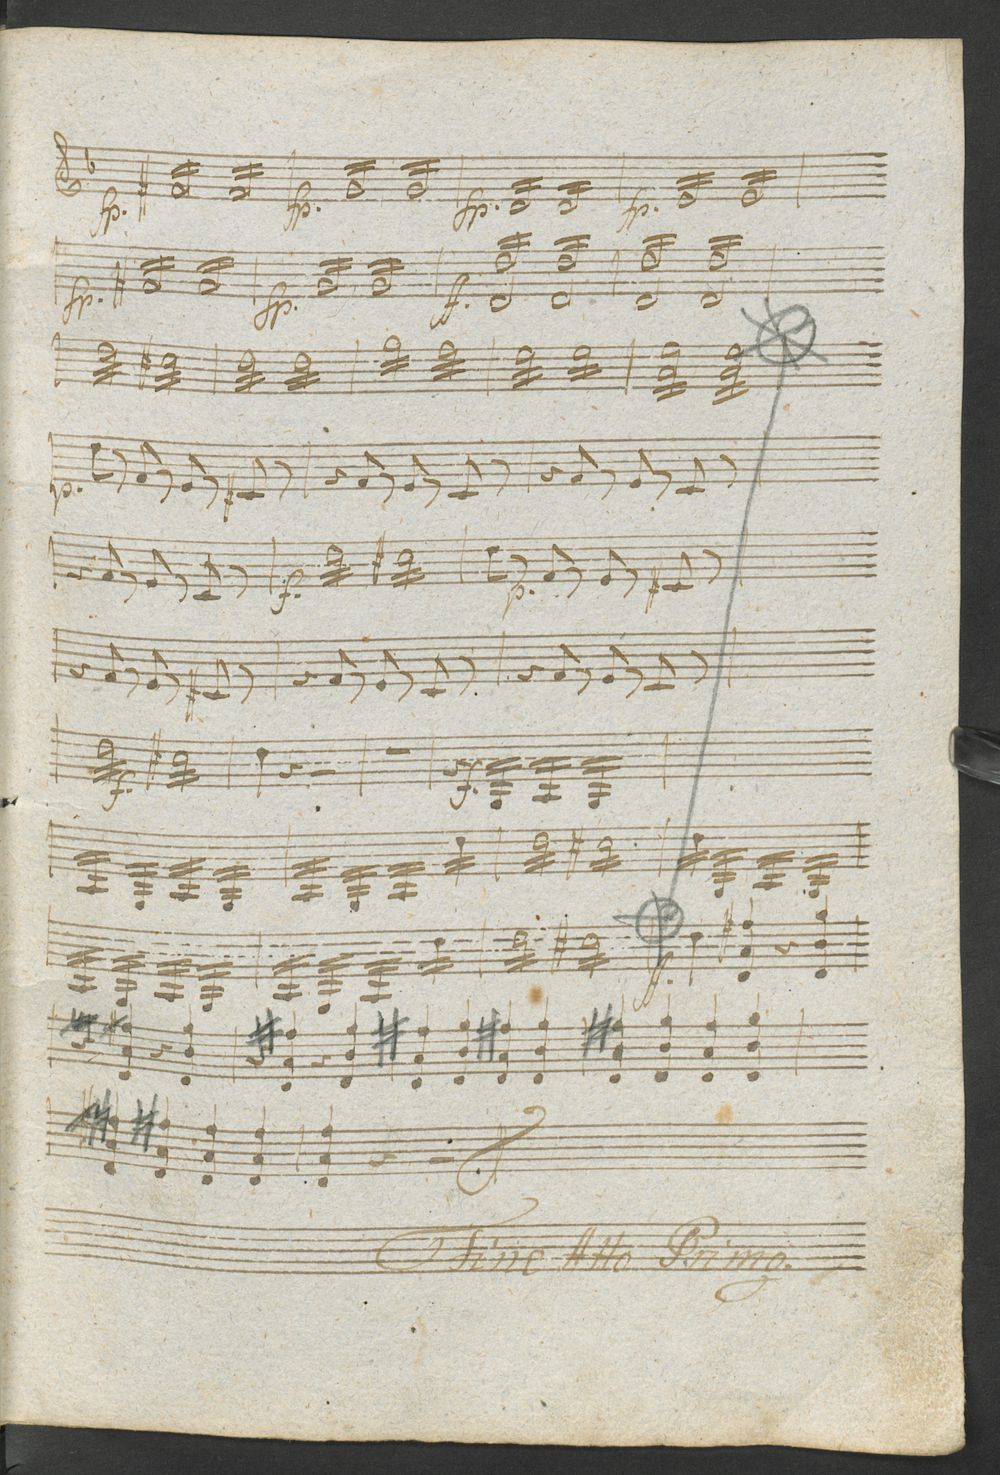 fp. fp. fp. fp.
fp. fp. f.
p.
f. p.
f. f.
f.
Fine Atto Primo.